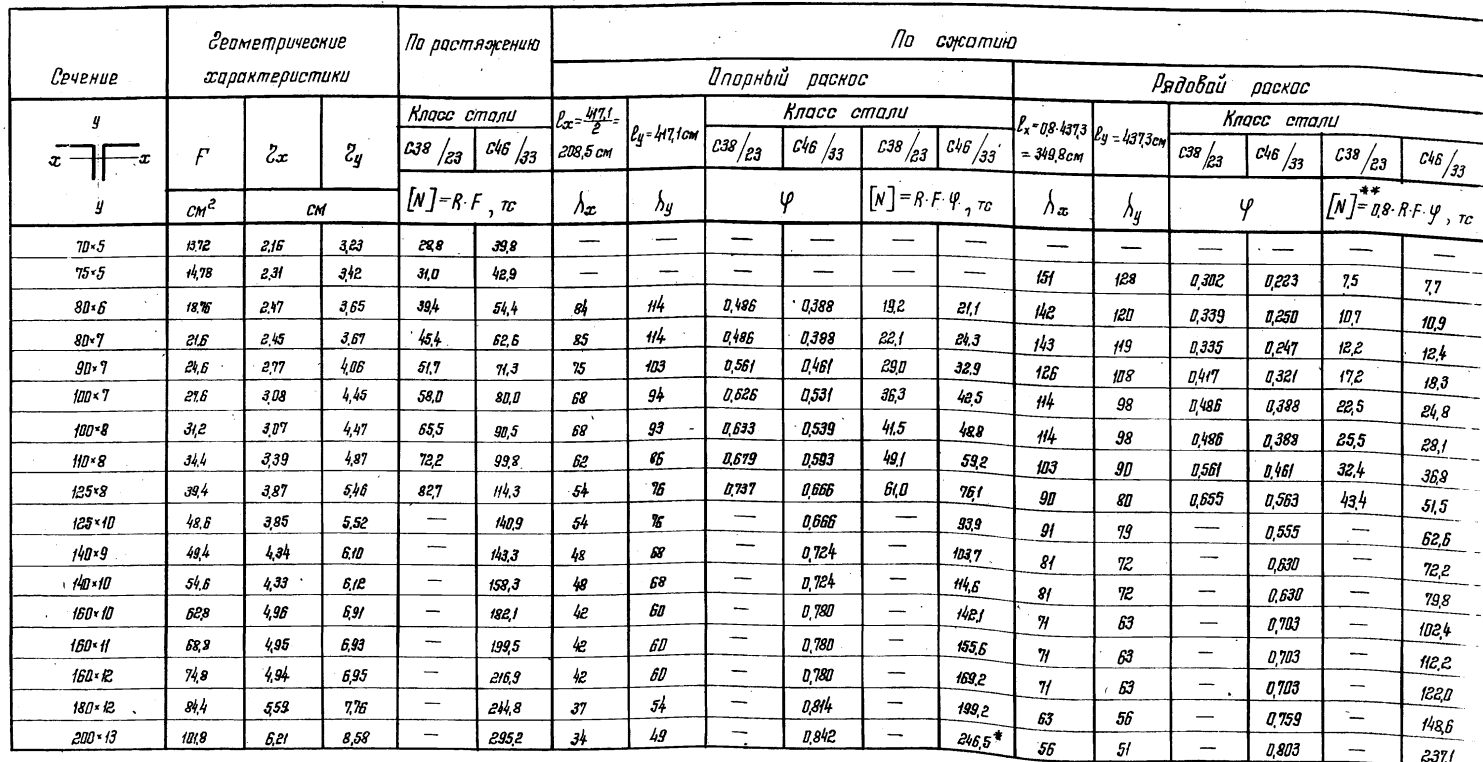 Сечение | Геометрические характеристики | По растяжению | По сжатию
Опорный раскос | Рядовой раскос
Класс стали | ℓx = 417,1/2 = 208,5 см | ℓy = 417,1 см | Класс стали | ℓx = 0,8·437,3 = 349,8 см | ℓy = 437,3 см | Класс стали
y x x y | F | rx | ry | С38/23 | С46/33 | С38/23 | С46/33 | С38/23 | С46/33 | С38/23 | С46/33 | С38/23 | С46/33
см² | см | [N] = R·F, тс | λx | λy | φ | [N] = R·F·φ, тс | λx | λy | φ | [N]** = 0,8·R·F·φ, тс
70×5 | 13,72 | 2,16 | 3,23 | 28,8 | 39,8 | — | — | — | — | — | — | — | — | — | — | — | —
75×5 | 14,78 | 2,31 | 3,42 | 31,0 | 42,9 | — | — | — | — | — | — | 151 | 128 | 0,302 | 0,223 | 7,5 | 7,7
80×6 | 18,76 | 2,47 | 3,65 | 39,4 | 54,4 | 84 | 114 | 0,486 | 0,388 | 19,2 | 21,1 | 142 | 120 | 0,339 | 0,250 | 10,7 | 10,9
80×7 | 21,6 | 2,45 | 3,67 | 45,4 | 62,6 | 85 | 114 | 0,486 | 0,388 | 22,1 | 24,3 | 143 | 119 | 0,335 | 0,247 | 12,2 | 12,4
90×7 | 24,6 | 2,77 | 4,06 | 51,7 | 71,3 | 75 | 103 | 0,561 | 0,461 | 29,0 | 32,9 | 126 | 108 | 0,417 | 0,321 | 17,2 | 18,3
100×7 | 27,6 | 3,08 | 4,45 | 58,0 | 80,0 | 68 | 94 | 0,626 | 0,531 | 36,3 | 42,5 | 114 | 98 | 0,486 | 0,388 | 22,5 | 24,8
100×8 | 31,2 | 3,07 | 4,47 | 65,5 | 90,5 | 68 | 93 | 0,633 | 0,539 | 41,5 | 48,8 | 114 | 98 | 0,486 | 0,388 | 25,5 | 28,1
110×8 | 34,4 | 3,39 | 4,87 | 72,2 | 99,8 | 62 | 86 | 0,679 | 0,593 | 49,1 | 59,2 | 103 | 90 | 0,561 | 0,461 | 32,4 | 36,8
125×8 | 39,4 | 3,87 | 5,46 | 82,7 | 114,3 | 54 | 76 | 0,737 | 0,666 | 61,0 | 76,1 | 90 | 80 | 0,655 | 0,563 | 43,4 | 51,5
125×10 | 48,6 | 3,85 | 5,52 | — | 140,9 | 54 | 76 | — | 0,666 | — | 93,9 | 91 | 79 | — | 0,555 | — | 62,6
140×9 | 49,4 | 4,34 | 6,10 | — | 143,3 | 48 | 68 | — | 0,724 | — | 103,7 | 81 | 72 | — | 0,630 | — | 72,2
140×10 | 54,6 | 4,33 | 6,12 | — | 158,3 | 48 | 68 | — | 0,724 | — | 114,6 | 81 | 72 | — | 0,630 | — | 79,8
160×10 | 62,8 | 4,96 | 6,91 | — | 182,1 | 42 | 60 | — | 0,780 | — | 142,1 | 71 | 63 | — | 0,703 | — | 102,4
160×11 | 68,8 | 4,95 | 6,93 | — | 199,5 | 42 | 60 | — | 0,780 | — | 155,6 | 71 | 63 | — | 0,703 | — | 112,2
160×12 | 74,8 | 4,94 | 6,95 | — | 216,9 | 42 | 60 | — | 0,780 | — | 169,2 | 71 | 63 | — | 0,703 | — | 122,0
180×12 | 84,4 | 5,59 | 7,76 | — | 244,8 | 37 | 54 | — | 0,814 | — | 199,2 | 63 | 56 | — | 0,759 | — | 148,6
200×13 | 101,8 | 6,21 | 8,58 | — | 295,2 | 34 | 49 | — | 0,842 | — | 246,5* | 56 | 51 | — | 0,803 | — | 237,1